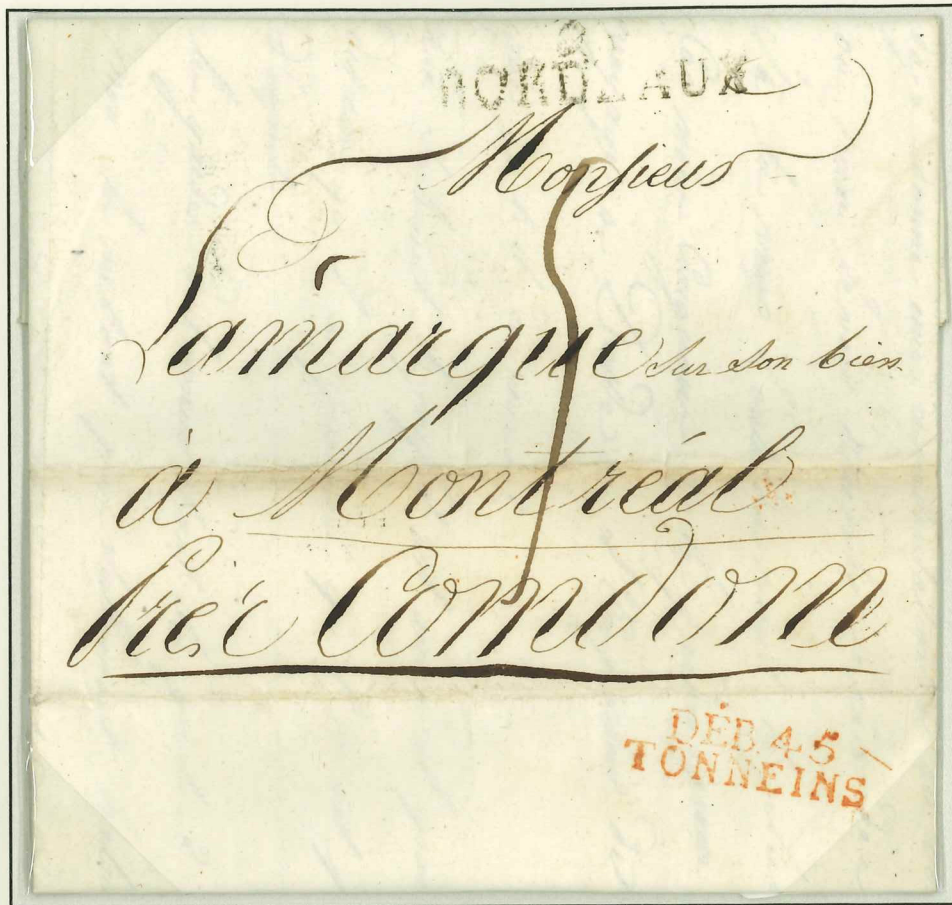 BORDEAUX
Monsieur
Lamarque sur son bien
à Montréal
prés Comdom
DÉB. 45
TONNEINS